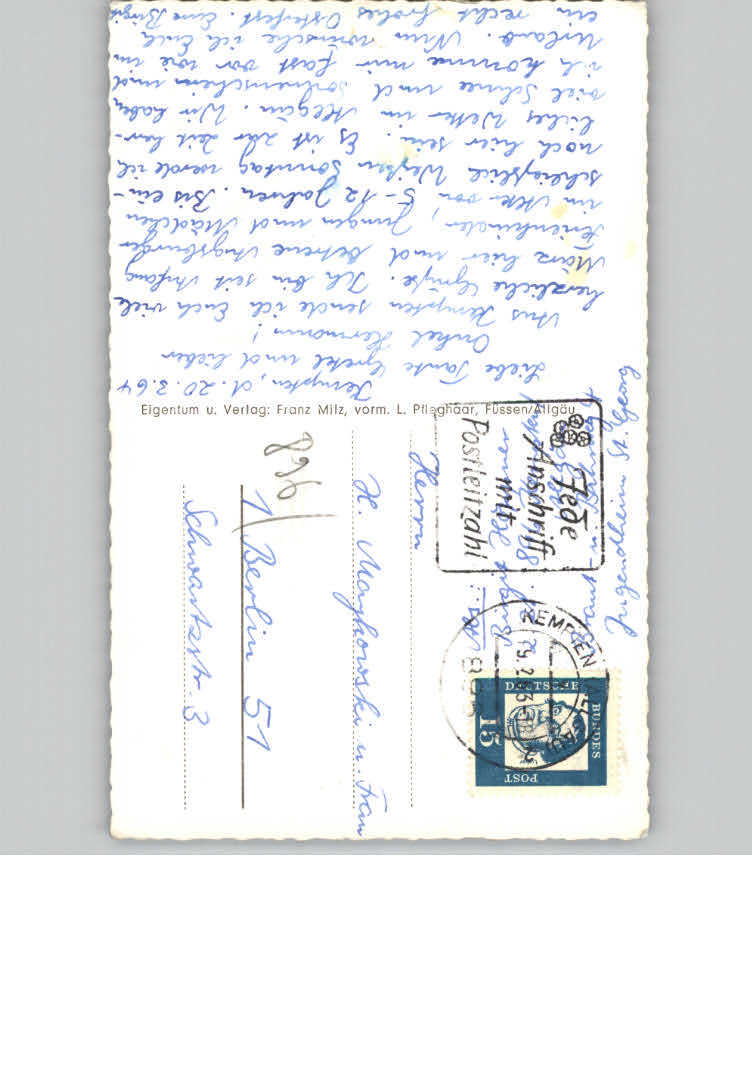 Kempten, d. 20.3.64
Liebe Tante Gretel und lieber
Onkel Hermann!
Aus Kempten sende ich Euch viele
herzliche Grüße. Ich bin seit Anfang
März hier und betreue Augsburger
Ferienkinder, Jungen und Mädchen
im Alter von 5-12 Jahren. Bis ein-
schließlich Weißen Sonntag werde ich
noch hier sein. Es ist zur Zeit herr-
liches Wetter im Allgäu. Wir haben
viel Schnee und Sonnenschein und
ich komme mir fast vor wie im
Urlaub. Nun wünsche ich Euch
ein recht frohes Osterfest. Eure Birgit
Eigentum u. Verlag: Franz Milz, vorm. L. Pfleghaar, Füssen/Allgäu
Jugendheim St. Georg
Jede
Anschrift
mit
Postleitzahl
KEMPTEN
DEUTSCHE
BUNDES
POST
15
Herrn
H. Mayhowski u. Frau
1/ Berlin 51
896
Schwartzstr. 3